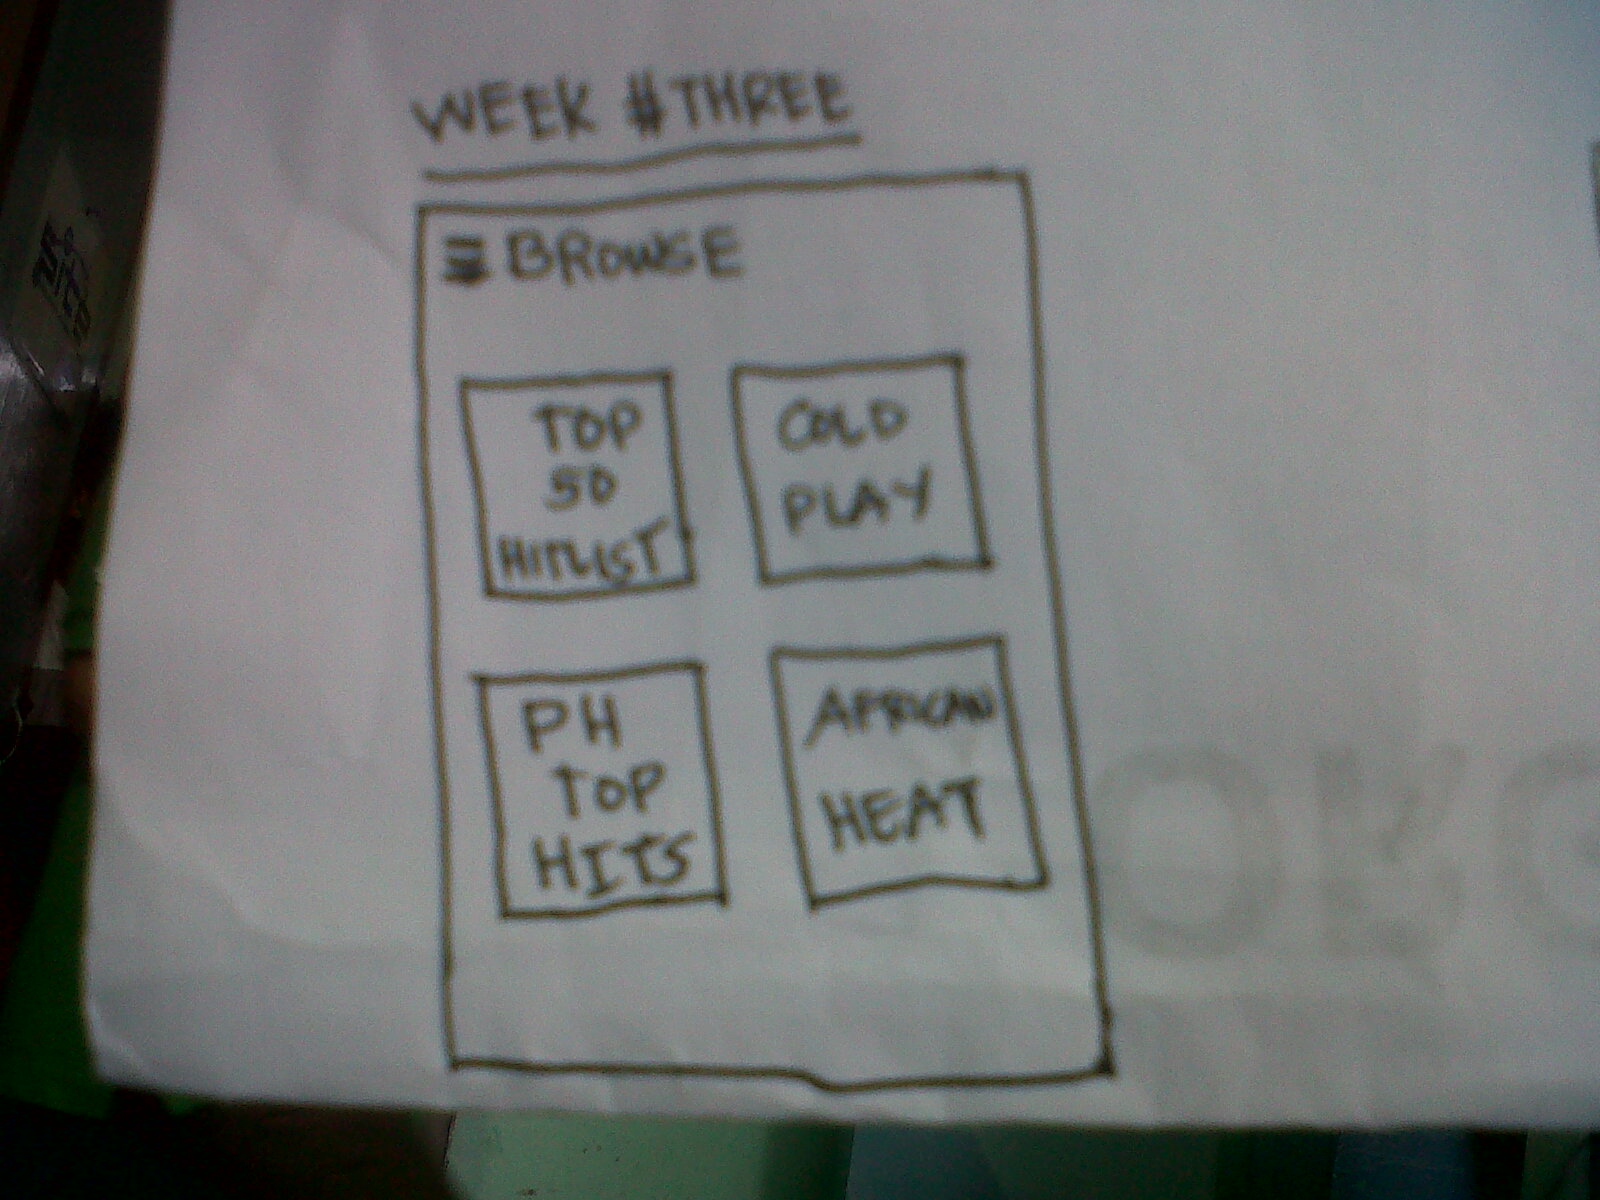 WEEK #THREE
BROWSE
TOP
50
HITLIST
COLD
PLAY
PH
TOP
HITS
AFRICAN
HEAT